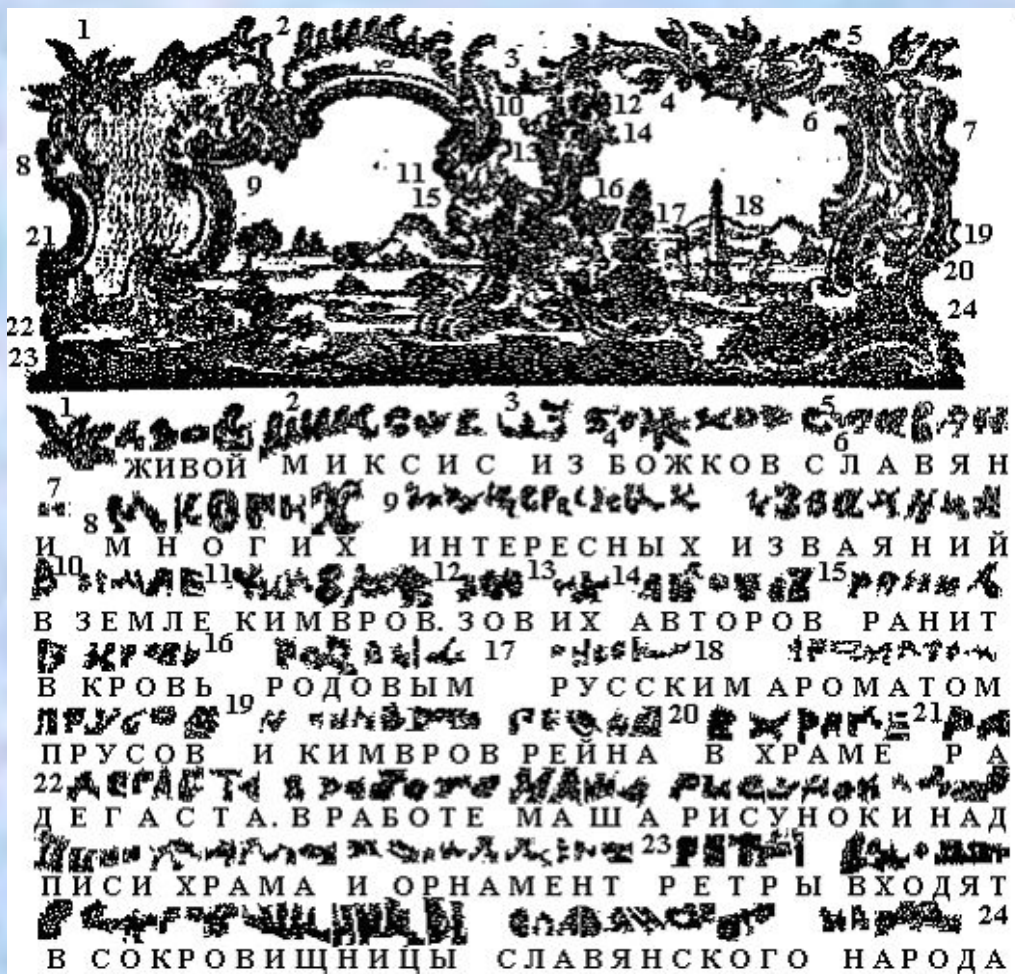 1 2 3 4 5
10 12 6 7
8 9 11 13 14
15 16 17 18 19
21 20
22 24
23
1 2 3 4 5 6
ЖИВОЙ МИКСИС ИЗ БОЖКОВ СЛАВЯН
7 8 9
И МНОГИХ ИНТЕРЕСНЫХ ИЗВАЯНИЙ
10 11 12 13 14 15
В ЗЕМЛЕ КИМВРОВ. ЗОВ ИХ АВТОРОВ РАНИТ
16 17 18
В КРОВЬ РОДОВЫМ РУССКИМ АРОМАТОМ
19 20 21
ПРУСОВ И КИМВРОВ РЕЙНА В ХРАМЕ РА
22
ДЕГАСТА. В РАБОТЕ МАША РИСУНОК И НАД
23
ПИСИ ХРАМА И ОРНАМЕНТ РЕТРЫ ВХОДЯТ
24
В СОКРОВИЩНИЦЫ СЛАВЯНСКОГО НАРОДА